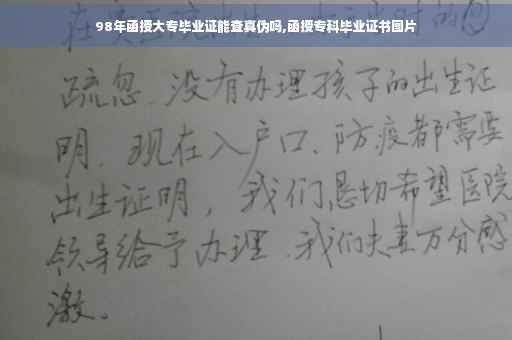 98年函授大专毕业证能查真伪吗,函授专科毕业证书图片
疏忽、没有办理孩子的出生证
明、现在入户口、防疫都需要
出生证明，我们恳切希望医院
领导给予办理、我们夫妻万分感
激。